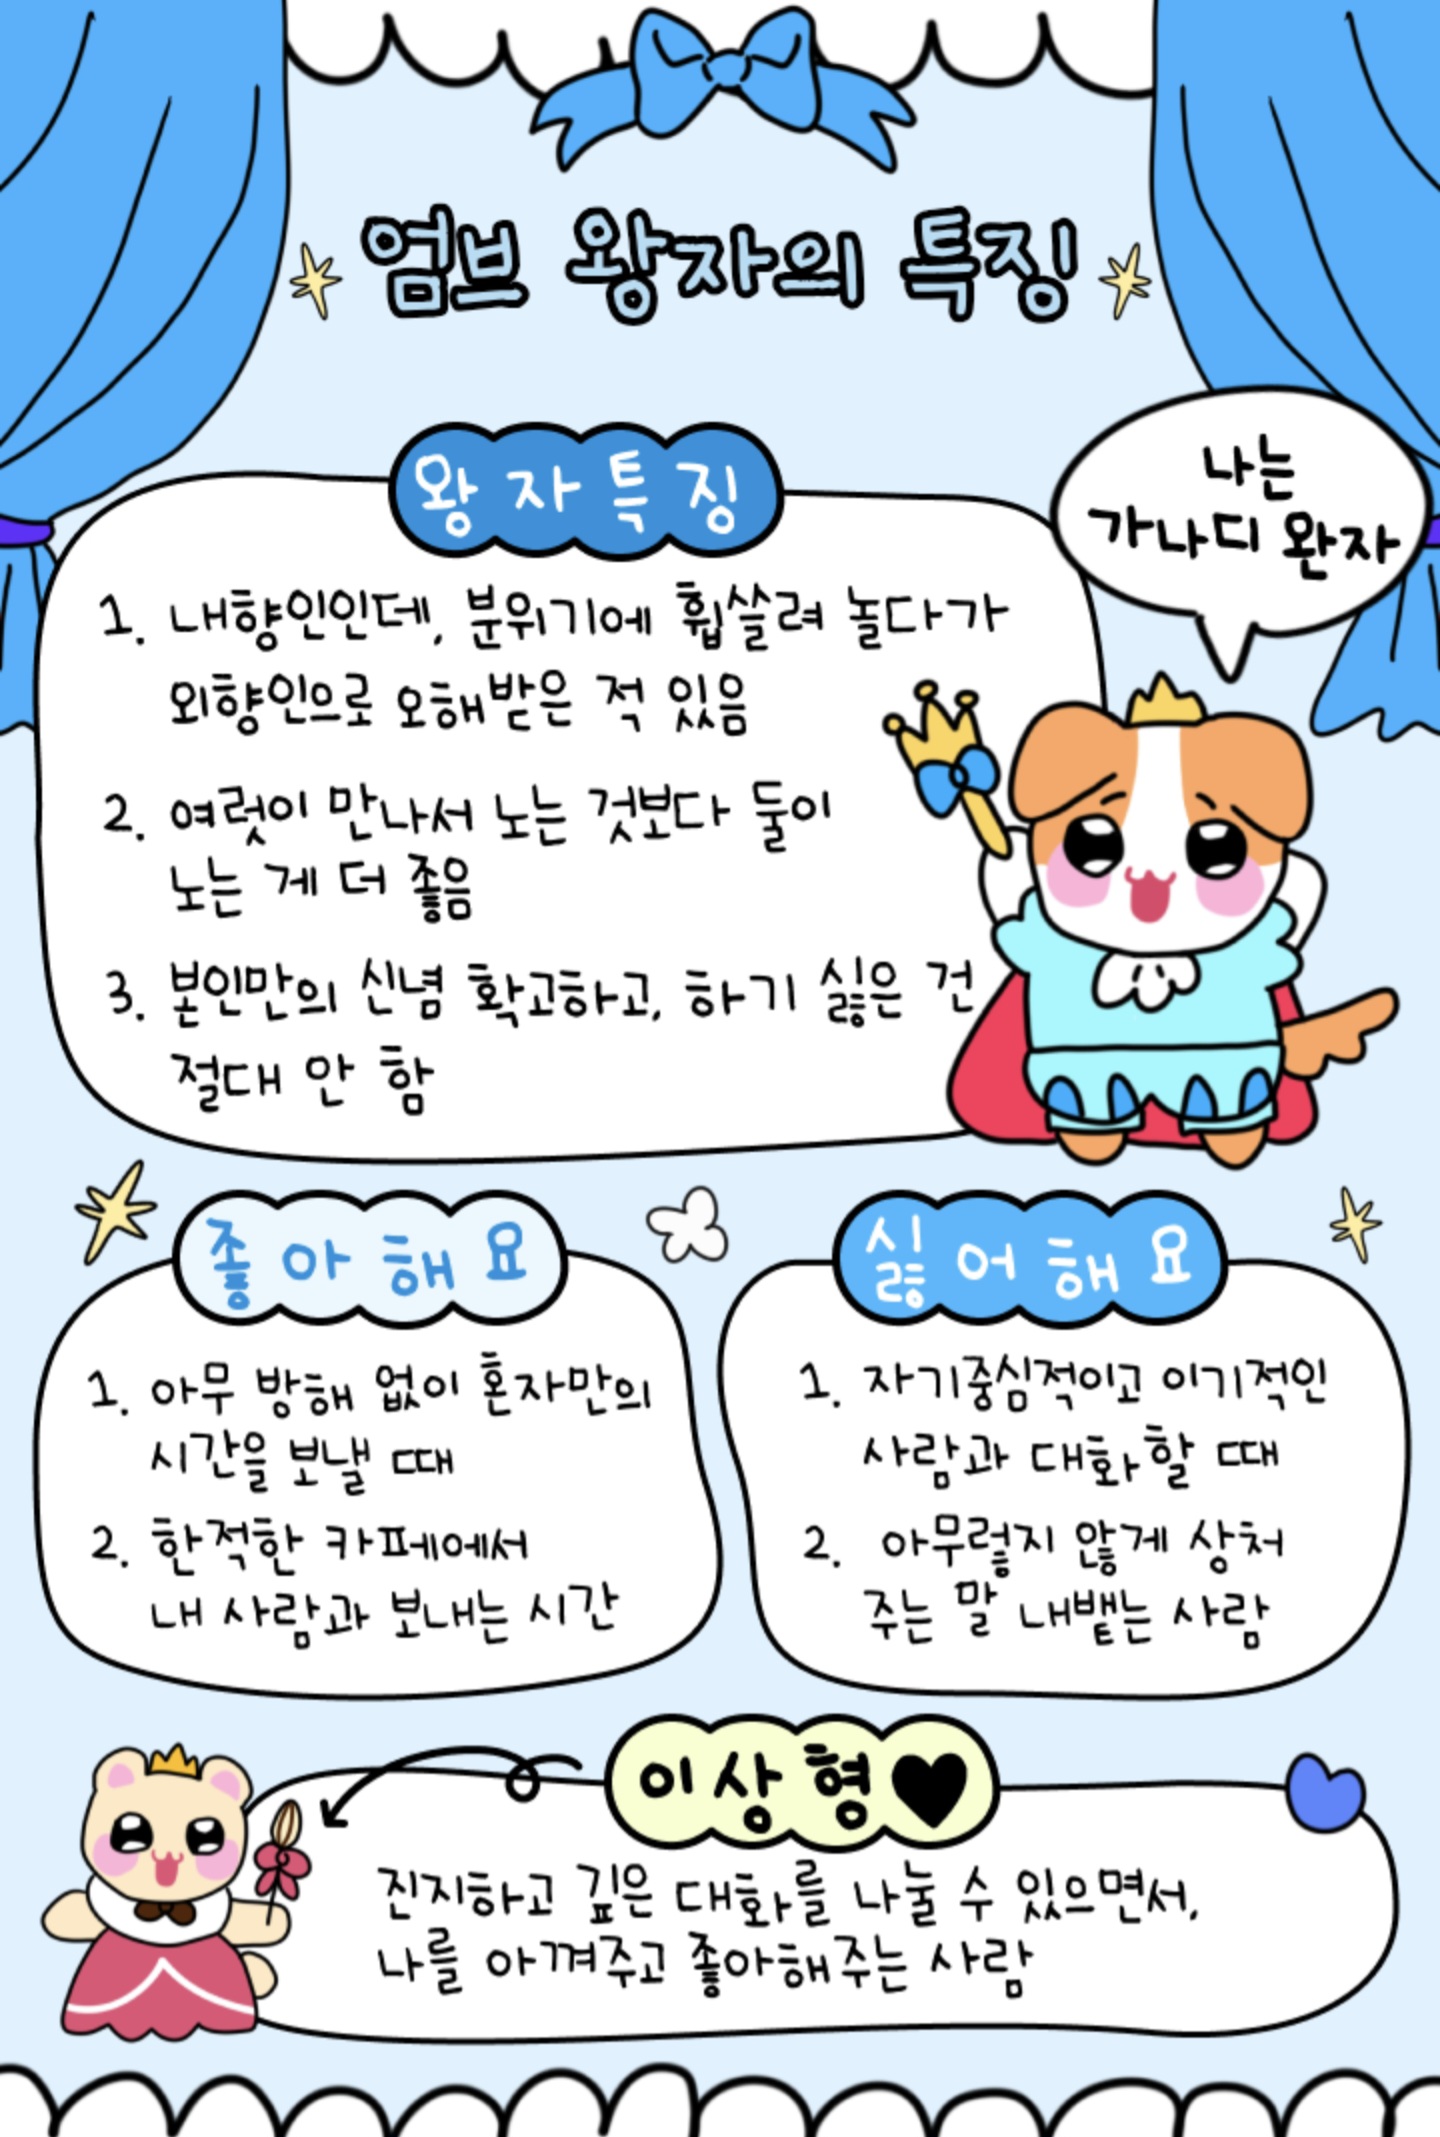 엄브 왕자의 특징
나는
가나디 왕자
왕자특징
1. 내향인인데, 분위기에 휩쓸려 놀다가
외향인으로 오해받은 적 있음
2. 여럿이 만나서 노는 것보다 둘이
노는 게 더 좋음
3. 본인만의 신념 확고하고, 하기 싫은 건
절대 안 함
좋아해요
1. 아무 방해 없이 혼자만의
시간을 보낼 때
2. 한적한 카페에서
내 사람과 보내는 시간
싫어해요
1. 자기중심적이고 이기적인
사람과 대화할 때
2. 아무렇지 않게 상처
주는 말 내뱉는 사람
이상형♥
진지하고 깊은 대화를 나눌 수 있으면서,
나를 아껴주고 좋아해주는 사람